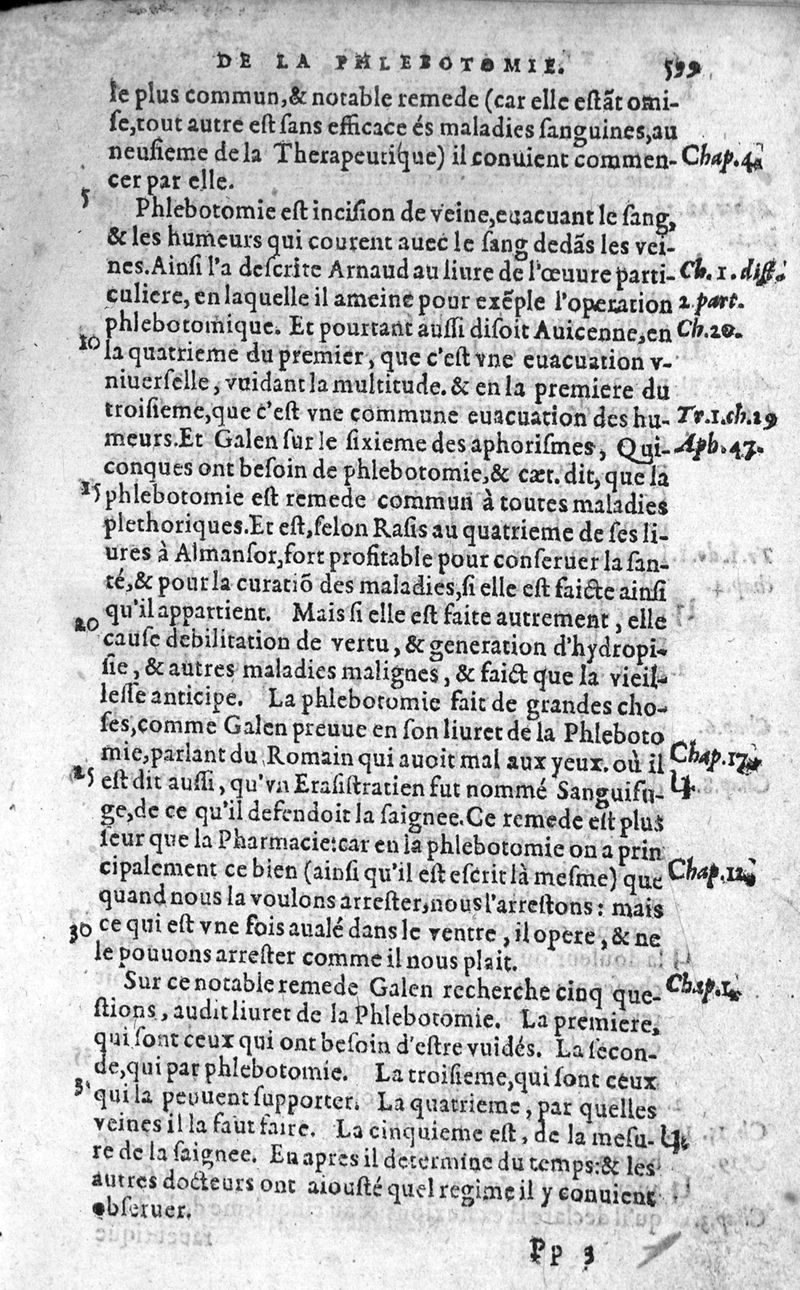 DE LA PHLEBOTOMIE. 599
le plus commun,& notable remede (car elle estãt omi-
se,tout autre est sans efficace és maladies sanguines,au
neufieme de la Therapeutique) il conuient commen- Chap.4.
cer par elle.
5
Phlebotomie est incision de veine,euacuant le sang,
& les humeurs qui courent auec le sang dedãs les vei-
nes.Ainsi l'a descrite Arnaud au liure de l'œuure parti- Ch. 1. dist.
culiere, en laquelle il ameine pour exẽple l'operation 2 part.
phlebotomique. Et pourtant aussi disoit Auicenne,en Ch.20.
10 la quatrieme du premier, que c'est vne euacuation v-
niuerselle, vuidant la multitude. & en la premiere du
troisieme,que c'est vne commune euacuation des hu- Tr.1.ch.29
meurs.Et Galen sur le sixieme des aphorismes, Qui- Aph.47.
conques ont besoin de phlebotomie,& cæt. dit, que la
15 phlebotomie est remede commun à toutes maladies
plethoriques.Et est,selon Rasis au quatrieme de ses li-
ures à Almansor,fort profitable pour conseruer la san-
té,& pour la curatiõ des maladies,si elle est faicte ainsi
qu'il appartient. Mais si elle est faite autrement, elle
20 cause debilitation de vertu, & generation d'hydropi-
sie, & autres maladies malignes, & faict que la vieil-
lesse anticipe. La phlebotomie fait de grandes cho-
ses,comme Galen preuue en son liuret de la Phleboto
mie,parlant du Romain qui auoit mal aux yeux. où il Chap.17.
25 est dit aussi, qu'vn Erasistratien fut nommé Sanguisu-
ge,de ce qu'il defendoit la saignee.Ce remede est plus
seur que la Pharmacie:car en la phlebotomie on a prin
cipalement ce bien (ainsi qu'il est escrit là mesme) que Chap.12.
quand nous la voulons arrester,nous l'arrestons: mais
30 ce qui est vne fois aualé dans le ventre, il opere, & ne
le pouuons arrester comme il nous plait.
Sur ce notable remede Galen recherche cinq que- Chap.1.
stions, audit liuret de la Phlebotomie. La premiere,
qui sont ceux qui ont besoin d'estre vuidés. La secon-
de,qui par phlebotomie. La troisieme,qui sont ceux
qui la peuuent supporter. La quatrieme, par quelles
veines il la faut faire. La cinquieme est, de la mesu-
re de la saignee. En apres il determine du temps:& les
autres docteurs ont aiousté quel regime il y conuient
obseruer.
Pp 3